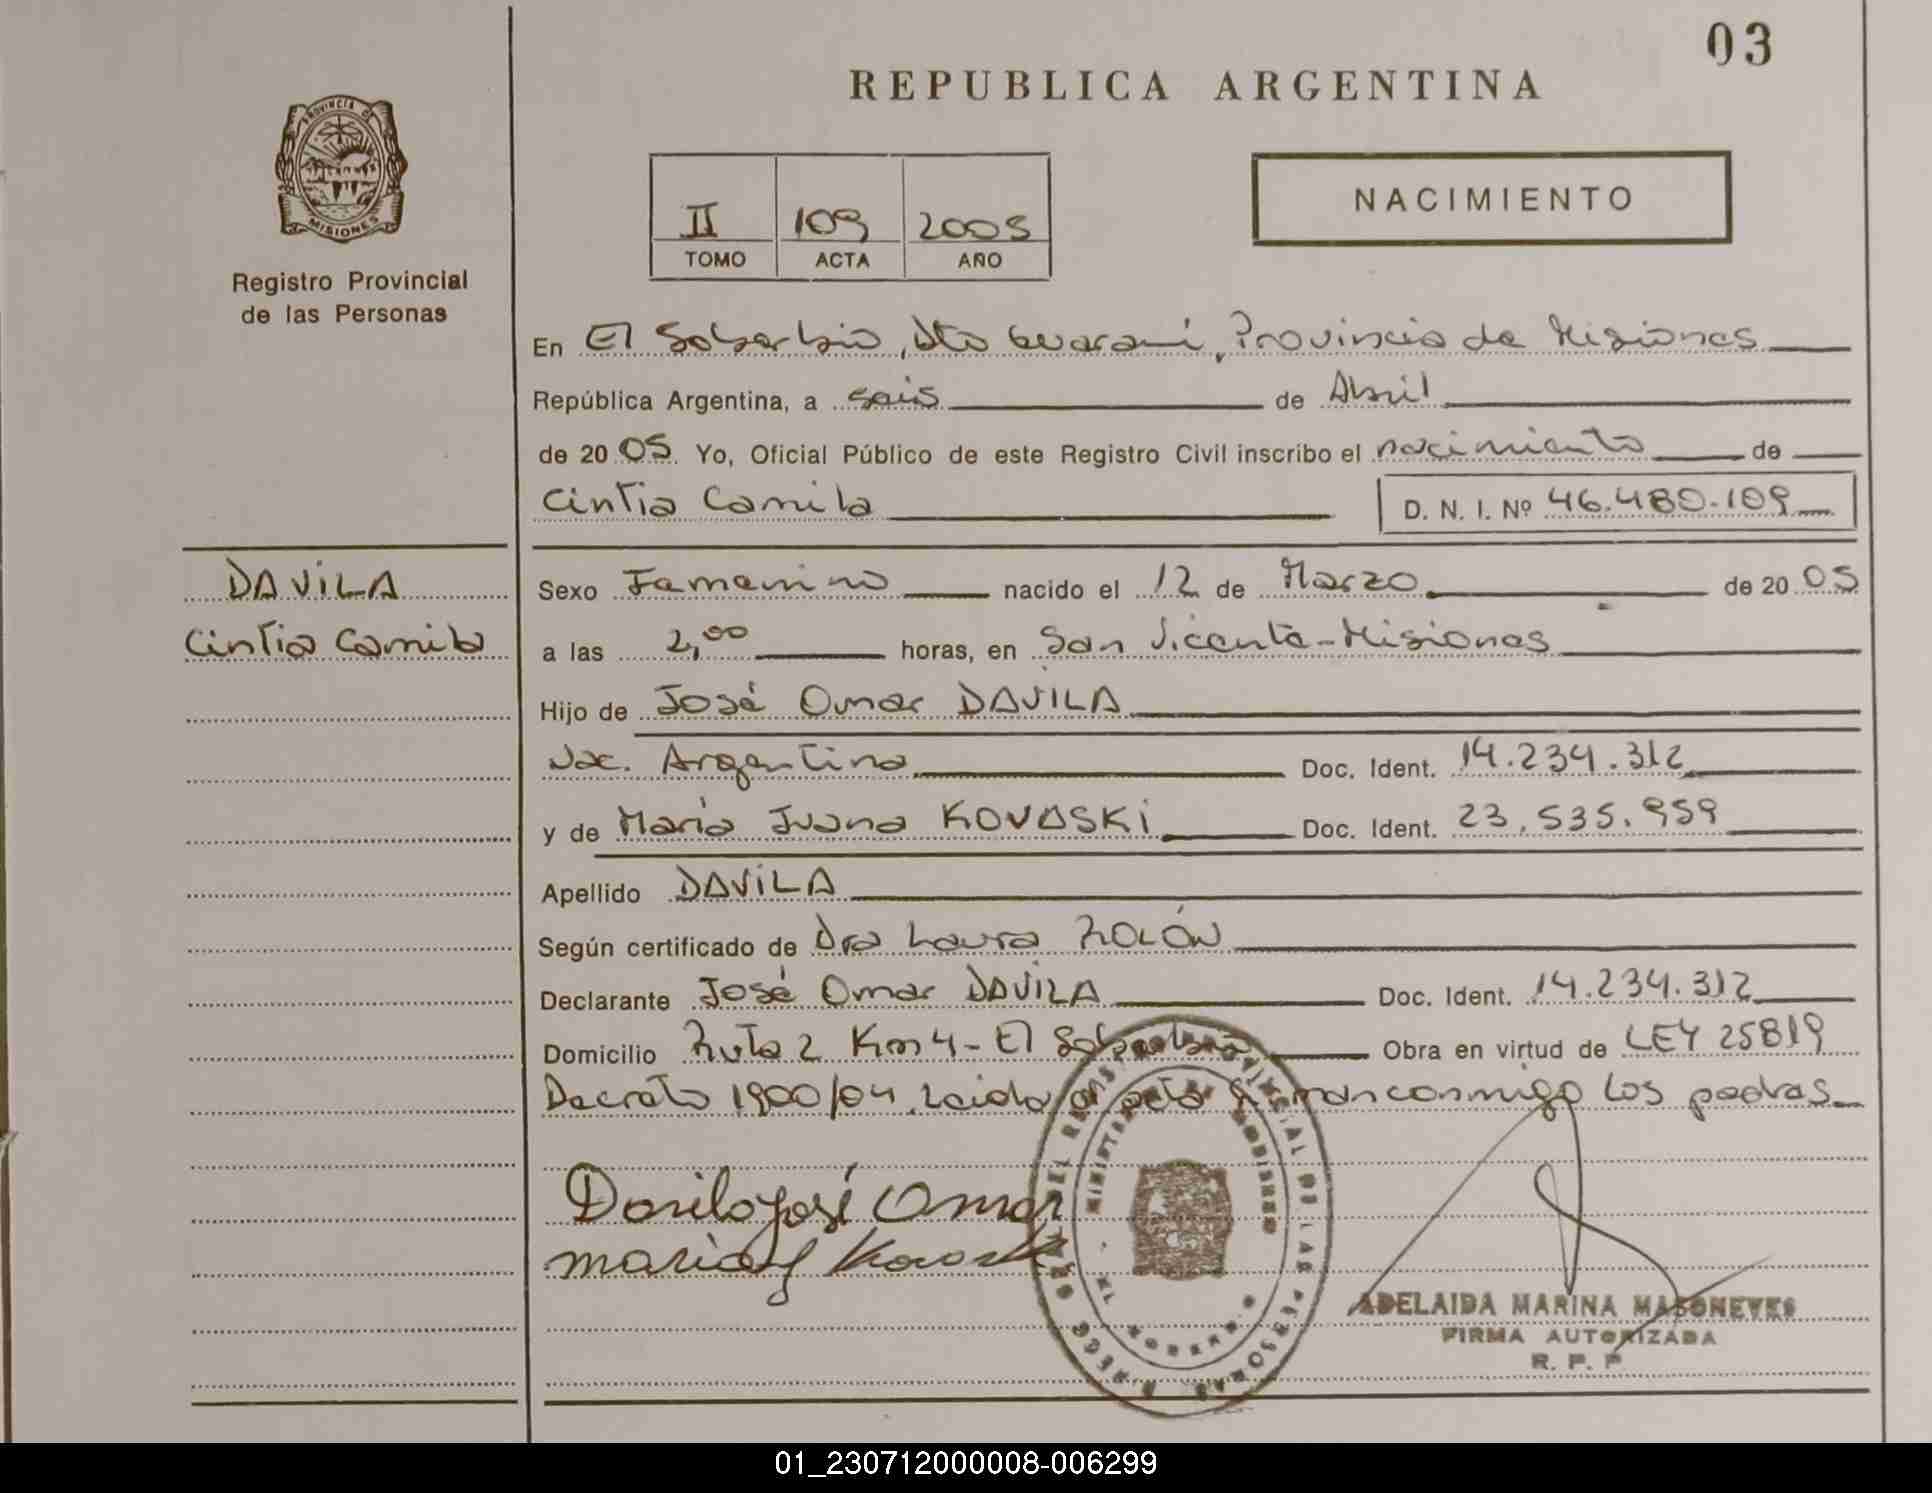 03
REPUBLICA ARGENTINA
PROVINCIA DE
MISIONES
Registro Provincial
de las Personas
NACIMIENTO
II 109 2005
TOMO ACTA AÑO
En El Soberbio, Dto Guaraní, Provincia de Misiones
República Argentina, a seis de Abril
de 20 05. Yo, Oficial Público de este Registro Civil inscribo el nacimiento de
Cintia Camila D. N. I. Nº 46.480.109
DAVILA
Cintia Camila
Sexo Femenino nacido el 12 de Marzo de 20 05
a las 2,00 horas, en San Vicente - Misiones
Hijo de José Omar DAVILA
Nac. Argentina Doc. Ident. 14.234.312
y de María Juana KOVASKI Doc. Ident. 23.535.959
Apellido DAVILA
Según certificado de Dra Laura ROLÓN
Declarante José Omar DAVILA Doc. Ident. 14.234.312
Domicilio Ruta 2 Km 4 - El Soberbio Obra en virtud de LEY 25819
Decreto 1900/04. Leida el acta firman conmigo los padres
Davila José Omar
Maria J Kovaski
PROVINCIAL DE LAS PERSONAS
ADELAIDA MARINA MASONEVES
FIRMA AUTORIZADA
R. P. P
01_230712000008-006299